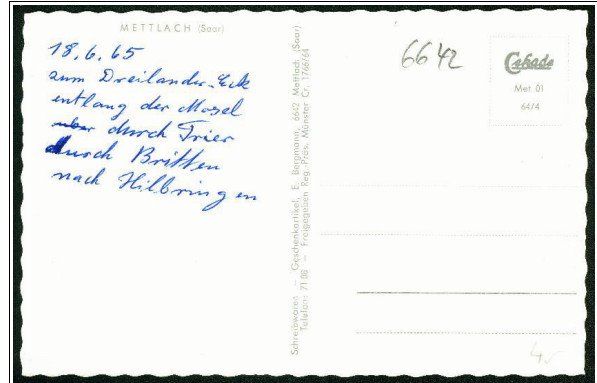 METTLACH (Saar)
18.6.65
zum Dreilander-Eck
entlang der Mosel
über durch Trier
durch Britten
nach Hilbringen
Schreibwaren – Geschenkartikel, E. Bergmann, 6642 Mettlach (Saar)
Telefon: 71 00 – Freigegeben Reg.-Präs. Münster Cr. 1766/64
6642
Cekade
Met 01
64/4
4,-